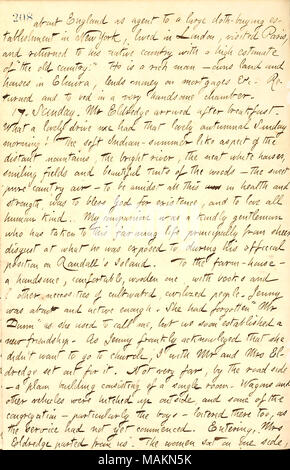 208
about England as agent to a large cloth-buying es-
tablishment in New York, lived in London, visited Paris,
and returned to his native country with a high estimate
of "the old country." He is a rich man — owns land and
houses in Elmira, lends money on mortgages &c. Re-
turned and to bed in a very handsome chamber.
17. Sunday. Mr Eldredge arrived after breakfast.
What a lovely drive we had that lovely autumnal Sunday
morning! The soft Indian-summer like aspect of the
distant mountains, the bright river, the neat white houses,
smiling fields and beautiful tints of the woods — the sweet
pure country air — to be amidst all this in health and
strength was to bless God for existence, and to love all
human kind. My companion was a kindly gentleman
who has taken to this farming life principally from sheer
disgust at what he was exposed to during his official
position on Randall's Island. To the farm-house —
a handsome, comfortable, wooden one, with books and
other necessities of cultivated civilized people. Jenny
was about and active enough. She had forgotten "Mr
Dunn" as she used to call me, but we soon established a
new friendship. As Jenny frankly acknowledged that she
didn't want to go to church, I with Mr and Mrs El-
dredge set out for it. Not very far, by the road side
— a plain building consisting of a single room. Wagons and
other vehicles were hitched up outside and some of the
congregation — particularly the boys — loitered there too, as
the service had not yet commenced. Entering, Mrs
Eldredge parted from us. The women sat on one side,
alamy
Image ID: MAKN5K
www.alamy.com